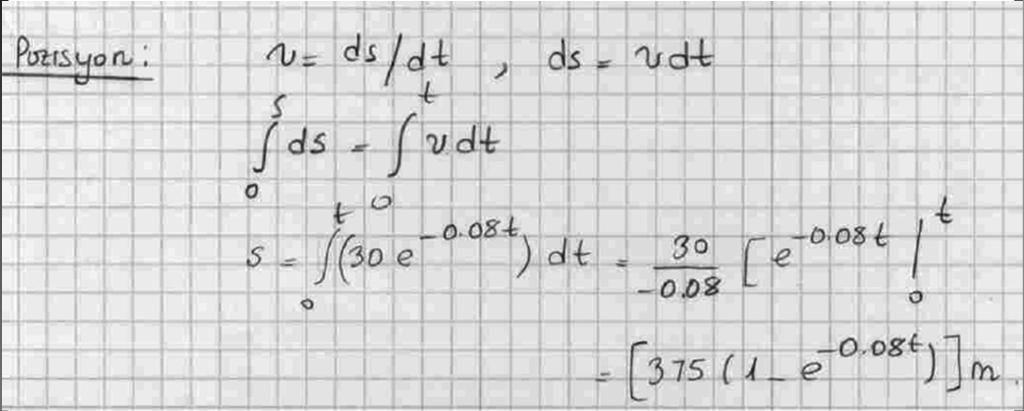 Pozisyon: v = ds/dt , ds = v dt
∫₀ˢ ds = ∫₀ᵗ v dt
s = ∫₀ᵗ (30 e^{-0.08t}) dt = \frac{30}{-0.08} [ e^{-0.08t} |₀ᵗ
= [375 (1 - e^{-0.08t})] m.